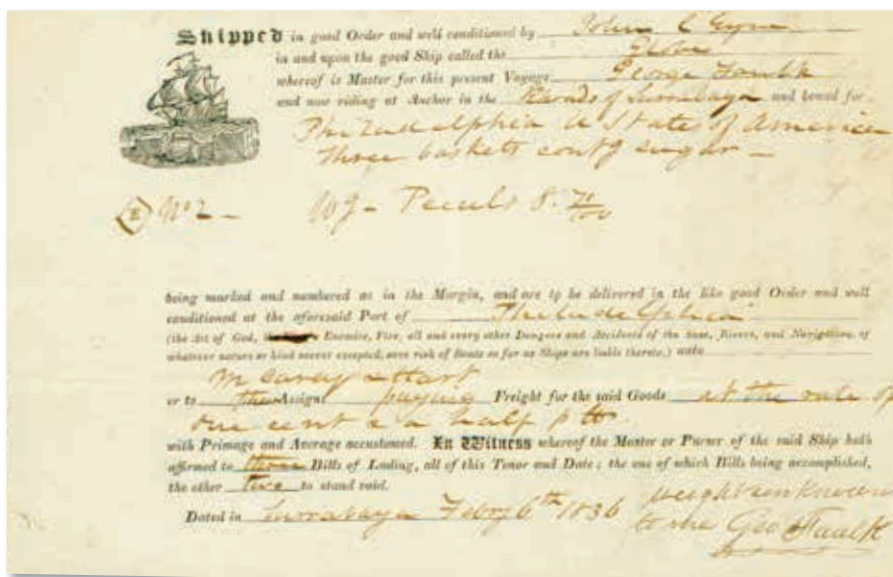 Shipped in good Order and well conditioned by John C
in and upon the good Ship called the Globe
whereof is Master for this present Voyage George Faulk
and now riding at Anchor in the Roads of Surrabaya and bound for
Philadelphia U States of America
three baskets contg sugar —
No 2 — Wg — Peculs 8. 71/100
being marked and numbered as in the Margin, and are to be delivered in the like good Order and well
conditioned at the aforesaid Port of Philadelphia
(the Act of God, Enemies, Fire, all and every other Dangers and Accidents of the Seas, Rivers, and Navigation, of
whatever nature or kind soever excepted, save risk of Boats so far as Ships are liable thereto,) unto
M Carey & Hart
or to their Assigns paying Freight for the said Goods at the rate of
one cent & a half p
with Primage and Average accustomed. In Witness whereof the Master or Purser of the said Ship hath
affirmed to three Bills of Lading, all of this Tenor and Date; the one of which Bills being accomplished,
the other two to stand void.
Dated in Surrabaya Febry 6th 1836
weight unknown
to me Geo Faulk